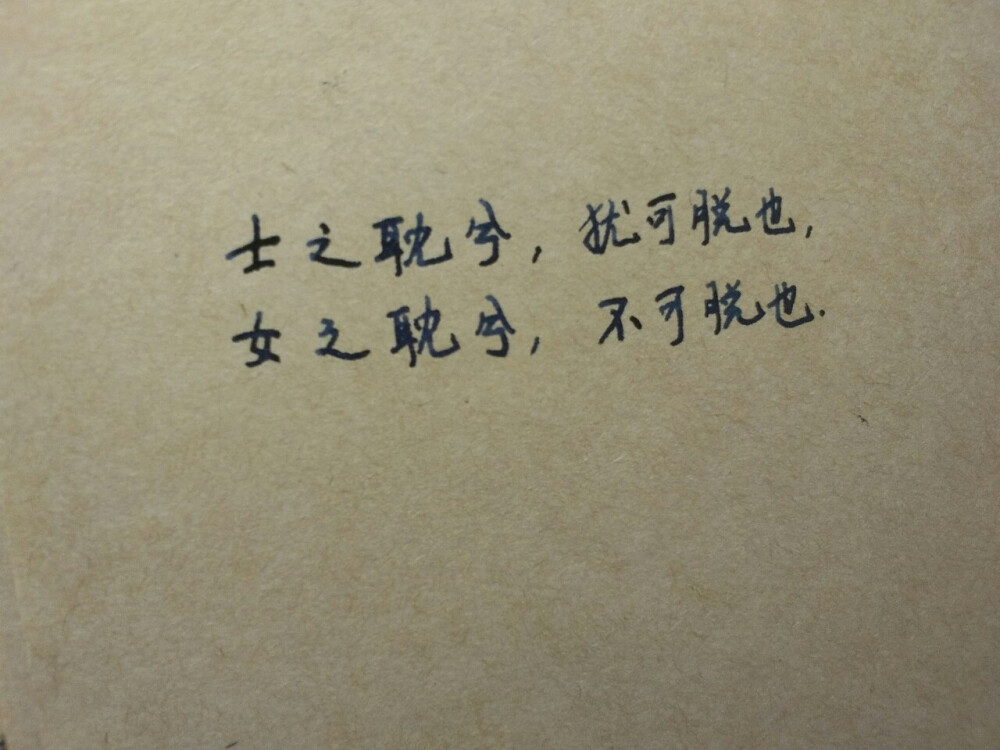 士之耽兮，犹可脱也，
女之耽兮，不可脱也.